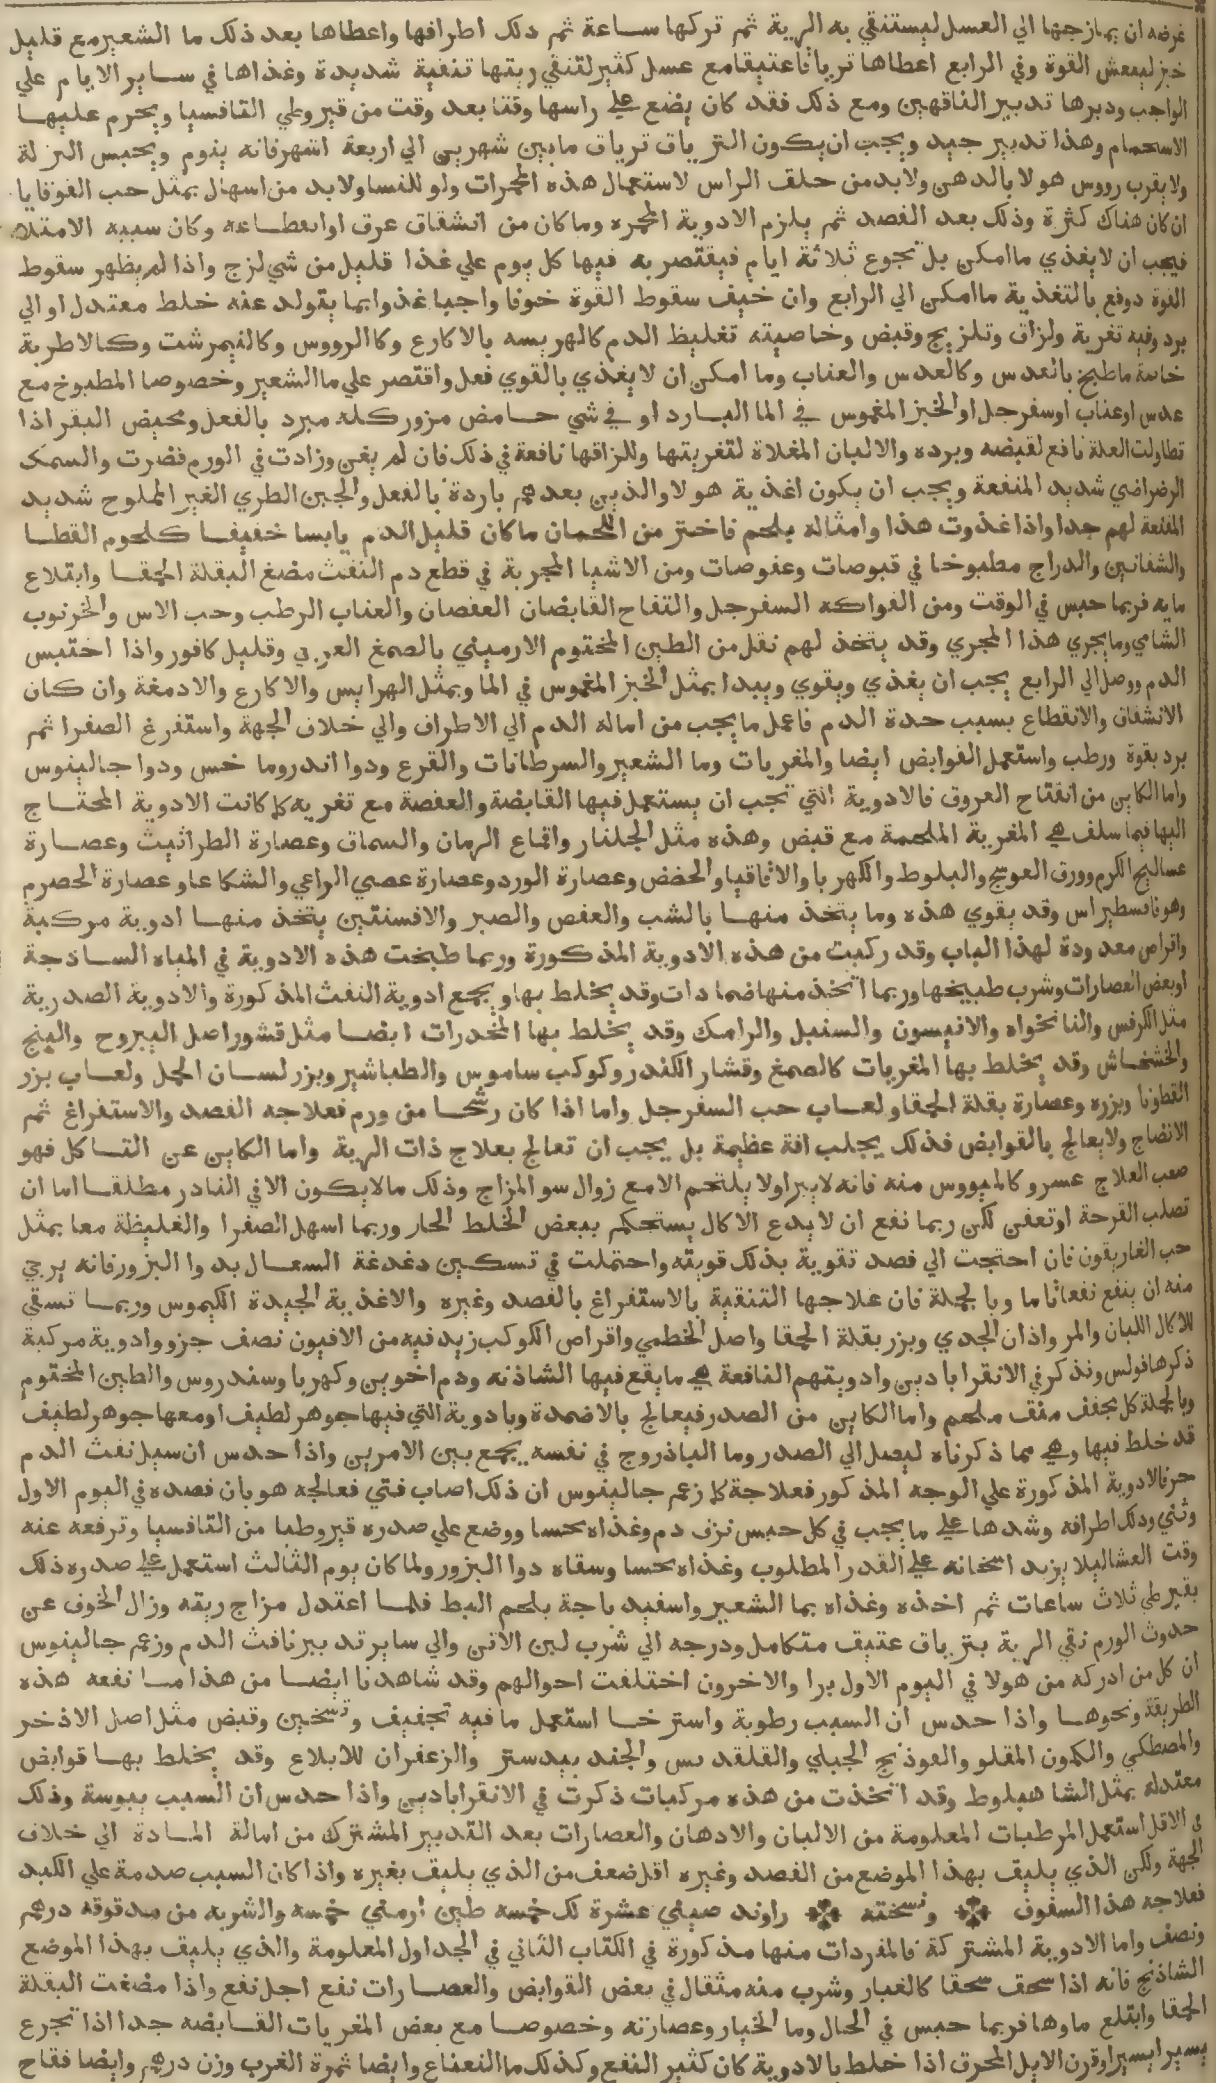 غرضه ان يمازجها الي العسل ليستنقي به الرية ثم تركها ساعة ثم دلك اطرافها واعطاها بعد ذلك ما الشعير مع قليل
خبز لينعش القوة وفي الرابع اعطاها ترياقا عتيقا مع عسل كثير لتنقي ريتها تنقية شديدة وغذاها في ساير الايام علي
الواجب ودبرها تدبير الناقهين ومع ذلك فقد كان يضع علي راسها وقتا بعد وقت من قيروطي الثافسيا ويحرم عليها
الاستحمام وهذا تدبير جيد ويجب ان يكون الترياق ترياق مابين شهرين الي اربعة اشهر فانه ينوم ويحبس النزلة
ولا يقرب رووس هولا بالدهن ولا بد من حلق الراس لاستعمال هذه المحمرات ولو للنسا ولا بد من اسهال بمثل حب القوقايا
ان كان هناك كثرة وذلك بعد الفصد ثم يلزم الادوية المحمره وما كان من انشقاق عرق او انقطاعه وكان سببه الامتلا
فيجب ان لا يغذي ما امكن بل تجوع ثلاثة ايام فيقتصر به فيها كل يوم علي غذا قليل من شي لزج واذا لم يظهر سقوط
القوة دوفع بالتغذية ما امكن الي الرابع وان خيف سقوط القوة خوفا واجبا غذوا بما يتولد عنه خلط معتدل او الي
برد وفيه تغرية ولزاق وتلزيج وقبض وخاصيته تغليظ الدم كالهريسه بالاكارع وكالرووس وكالنيمرشت وكالاطرية
خاصة ما طبخ بالعدس وكالعدس والعناب وما امكن ان لا يغذي بالقوي فعل واقتصر علي ما الشعير وخصوصا المطبوخ مع
عدس او عناب او سفرجل او الخبز المغموس في الما البارد او في شي حامض مزور كله مبرد بالفعل ومخيض البقر اذا
تطاولت العلة نافع لقبضه وبرده والالبان المغلاة لتغريتها وللزاقها نافعة في ذلك فان لم يغن وزادت في الورم فضرت والسمك
الرضراضي شديد المنفعة ويجب ان يكون اغذية هولا والذين بعدهم باردة بالفعل والجبن الطري الغير المملوح شديد
المنفعة لهم جدا واذا غذوت هذا وامثاله بلحم فاختر من اللحمان ما كان قليل الدم يابسا خفيفا كلحوم القطا
والشفانين والدراج مطبوخا في قبوضات وعفوصات ومن الاشيا المجربة في قطع دم النفث مضغ البقلة الحمقا وابتلاع
مايه فربما حبس في الوقت ومن الفواكه السفرجل والتفاح القابضان العفصان والعناب الرطب وحب الاس والخرنوب
الشامي وما يجري هذا المجري وقد يتخذ لهم نقل من الطين المختوم الارميني بالصمغ العربي وقليل كافور واذا احتبس
الدم ووصل الي الرابع يجب ان يغذي ويقوي ويبدا بمثل الخبز المغموس في الما وبمثل الهرايس والاكارع والادمغة وان كان
الانشقاق والانقطاع بسبب حدة الدم فاعمل ما يجب من امالة الدم الي الاطراف والي خلاف الجهة واستفرغ الصفرا ثم
برد بقوة ورطب واستعمل القوابض ايضا والمغريات وما الشعير والسرطانات والقرع ودوا اندروماخس ودوا جالينوس
واما الكاين من انفتاح العروق فالادوية التي تجب ان يستعمل فيها القابضة والعفصة مع تغريه كما كانت الادوية المحتاج
اليها فيما سلف هي المغرية الملحمة مع قبض وهذه مثل الجلنار واقماع الرمان والسماق وعصارة الطراثيث وعصارة
عساليج الكرم وورق العوسج والبلوط والكهربا والاقاقيا والحضض وعصارة الورد وعصارة عصي الراعي والشكاعا وعصارة الحصرم
وهوفاقسطيراس وقد يقوي هذه وما يتخذ منها بالشب والعفص والصبر والافسنتين يتخذ منها ادوية مركبة
واقراص معدودة لهذا الباب وقد ركبت من هذه الادوية المذكورة وربما طبخت هذه الادوية في المياه الساذجة
او بعض العصارات وشرب طبيخها وربما اتخذ منها ضمادات وقد يخلط بها ويجمع ادوية النفث المذكورة والادوية الصدرية
مثل الكرفس والنانخواه والانيسون والسنبل والرامك وقد يخلط بها المخدرات ايضا مثل قشور اصل اليبروح والبنج
والخشخاش وقد يخلط بها المغريات كالصمغ وقشار الكندر وكوكب ساموس والطباشير وبزر لسان الحمل ولعاب بزر
القطونا وبزره وعصارة بقلة الحمقا ولعاب حب السفرجل واما اذا كان رشحا من ورم فعلاجه الفصد والاستفراغ ثم
الانضاج ولا يعالج بالقوابض فذلك يجلب افة عظيمة بل يجب ان تعالج بعلاج ذات الرية واما الكاين عن التاكل فهو
صعب العلاج عسر وكالميووس منه فانه لا يبرا ولا يلتحم الا مع زوال سو المزاج وذلك ما لا يكون الا في النادر مطلقا اما ان
تصلب القرحة او تعفن لكن ربما نفع ان لا يدع الاكال يستحكم ببعض الخلط الحار وربما اسهل الصفرا والغليظة معا بمثل
حب الغاريقون فان احتجت الي فصد تقوية بذلك قويته واحتملت في تسكين دغدغة السعال بدوا البزور فانه يرجي
منه ان ينفع نفعا تاما وبالجملة فان علاجها التنقية بالاستفراغ بالفصد وغيره والاغذية الجيدة الكيموس وربما تسقي
للاكال اللبان والمر واذان الجدي وبزر بقلة الحمقا واصل الخطمي واقراص الكوكب زيد فيه من الافيون نصف جزو وادوية مركبة
ذكرها فولس ونذكر في الانقراباذين وادويتهم النافعة هي ما يقع فيها الشاذنه ودم اخوين وكهربا وسندروس والطين المختوم
وبالجملة كل مجفف منق ملحم واما الكاين من الصدر فيعالج بالاضمدة وبادوية التي فيها جوهر لطيف او معها جوهر لطيف
قد خلط فيها وهي مما ذكرناه ليصل الي الصدر وما الباذروج في نفسه يجمع بين الامرين واذا حدس ان سبيل نفث الدم
حر فالادوية المذكورة علي الوجه المذكور فعلاجة كما زعم جالينوس ان ذلك اصاب فتي فعالجه هو بان فصده في اليوم الاول
وثني ودلك اطرافه وشدها علي ما يجب في كل حبس نزف دم وغذاه بحسا ووضع علي صدره قيروطيا من الثافسيا وترفعه عنه
وقت العشا ليلا يزيد اسخانه علي القدر المطلوب وغذاه بحسا وسقاه دوا البزور ولما كان يوم الثالث استعمل علي صدره ذلك
بقيرطي ثلاث ساعات ثم اخذه وغذاه بما الشعير واسفيد باجة بلحم البط فلما اعتدل مزاج ريته وزال الخوف عن
حدوث الورم نقي الرية بترياق عتيق متكامل ودرجه الي شرب لبن الاتن والي ساير تدبير نافث الدم وزعم جالينوس
ان كل من ادركه من هولا في اليوم الاول برا والاخرون اختلفت احوالهم وقد شاهدنا ايضا من هذا ما نفعه هذه
الطريقة ونحوها واذا حدس ان السبب رطوبة واسترخا استعمل ما فيه تجفيف وتسخين وقبض مثل اصل الاذخر
والمصطكي والكمون المقلو والفوذنج الجبلي والقلقديس والجندبيدستر والزعفران للابلاغ وقد يخلط بها قوابض
معتدلة بمثل الشاهبلوط وقد اتخذت من هذه مركبات ذكرت في الانقراباذين واذا حدس ان السبب يبوسة وذلك
في الاقل استعمل المرطبات المعلومة من الالبان والادهان والعصارات بعد التدبير المشترك من امالة المادة الي خلاف
الجهة ولكن الذي يليق بهذا الموضع من الفصد وغيره اقل ضعف من الذي يليق بغيره واذا كان السبب صدمة علي الكبد
فعلاجه هذا السفوف ونسخته راوند صيني عشرة لك خمسه طين ارمني خمسه والشربه من مدقوقه درهم
ونصف واما الادوية المشتركة فالمفردات منها مذكورة في الكتاب الثاني في الجداول المعلومة والذي يليق بهذا الموضع
الشاذنج فانه اذا سحق سحقا كالغبار وشرب منه مثقال في بعض القوابض والعصارات نفع اجل نفع واذا مضغت البقلة
الحمقا وابتلع ماوها فربما حبس في الحال وما الخيار وعصارته وخصوصا مع بعض المغريات القابضه جدا اذا تجرع
يسيرا يسيرا وقرن الايل المحرق اذا خلط بالادوية كان كثير النفع وكذلك ما النعناع وايضا ثمرة الغرب وزن درهم وايضا فقاح